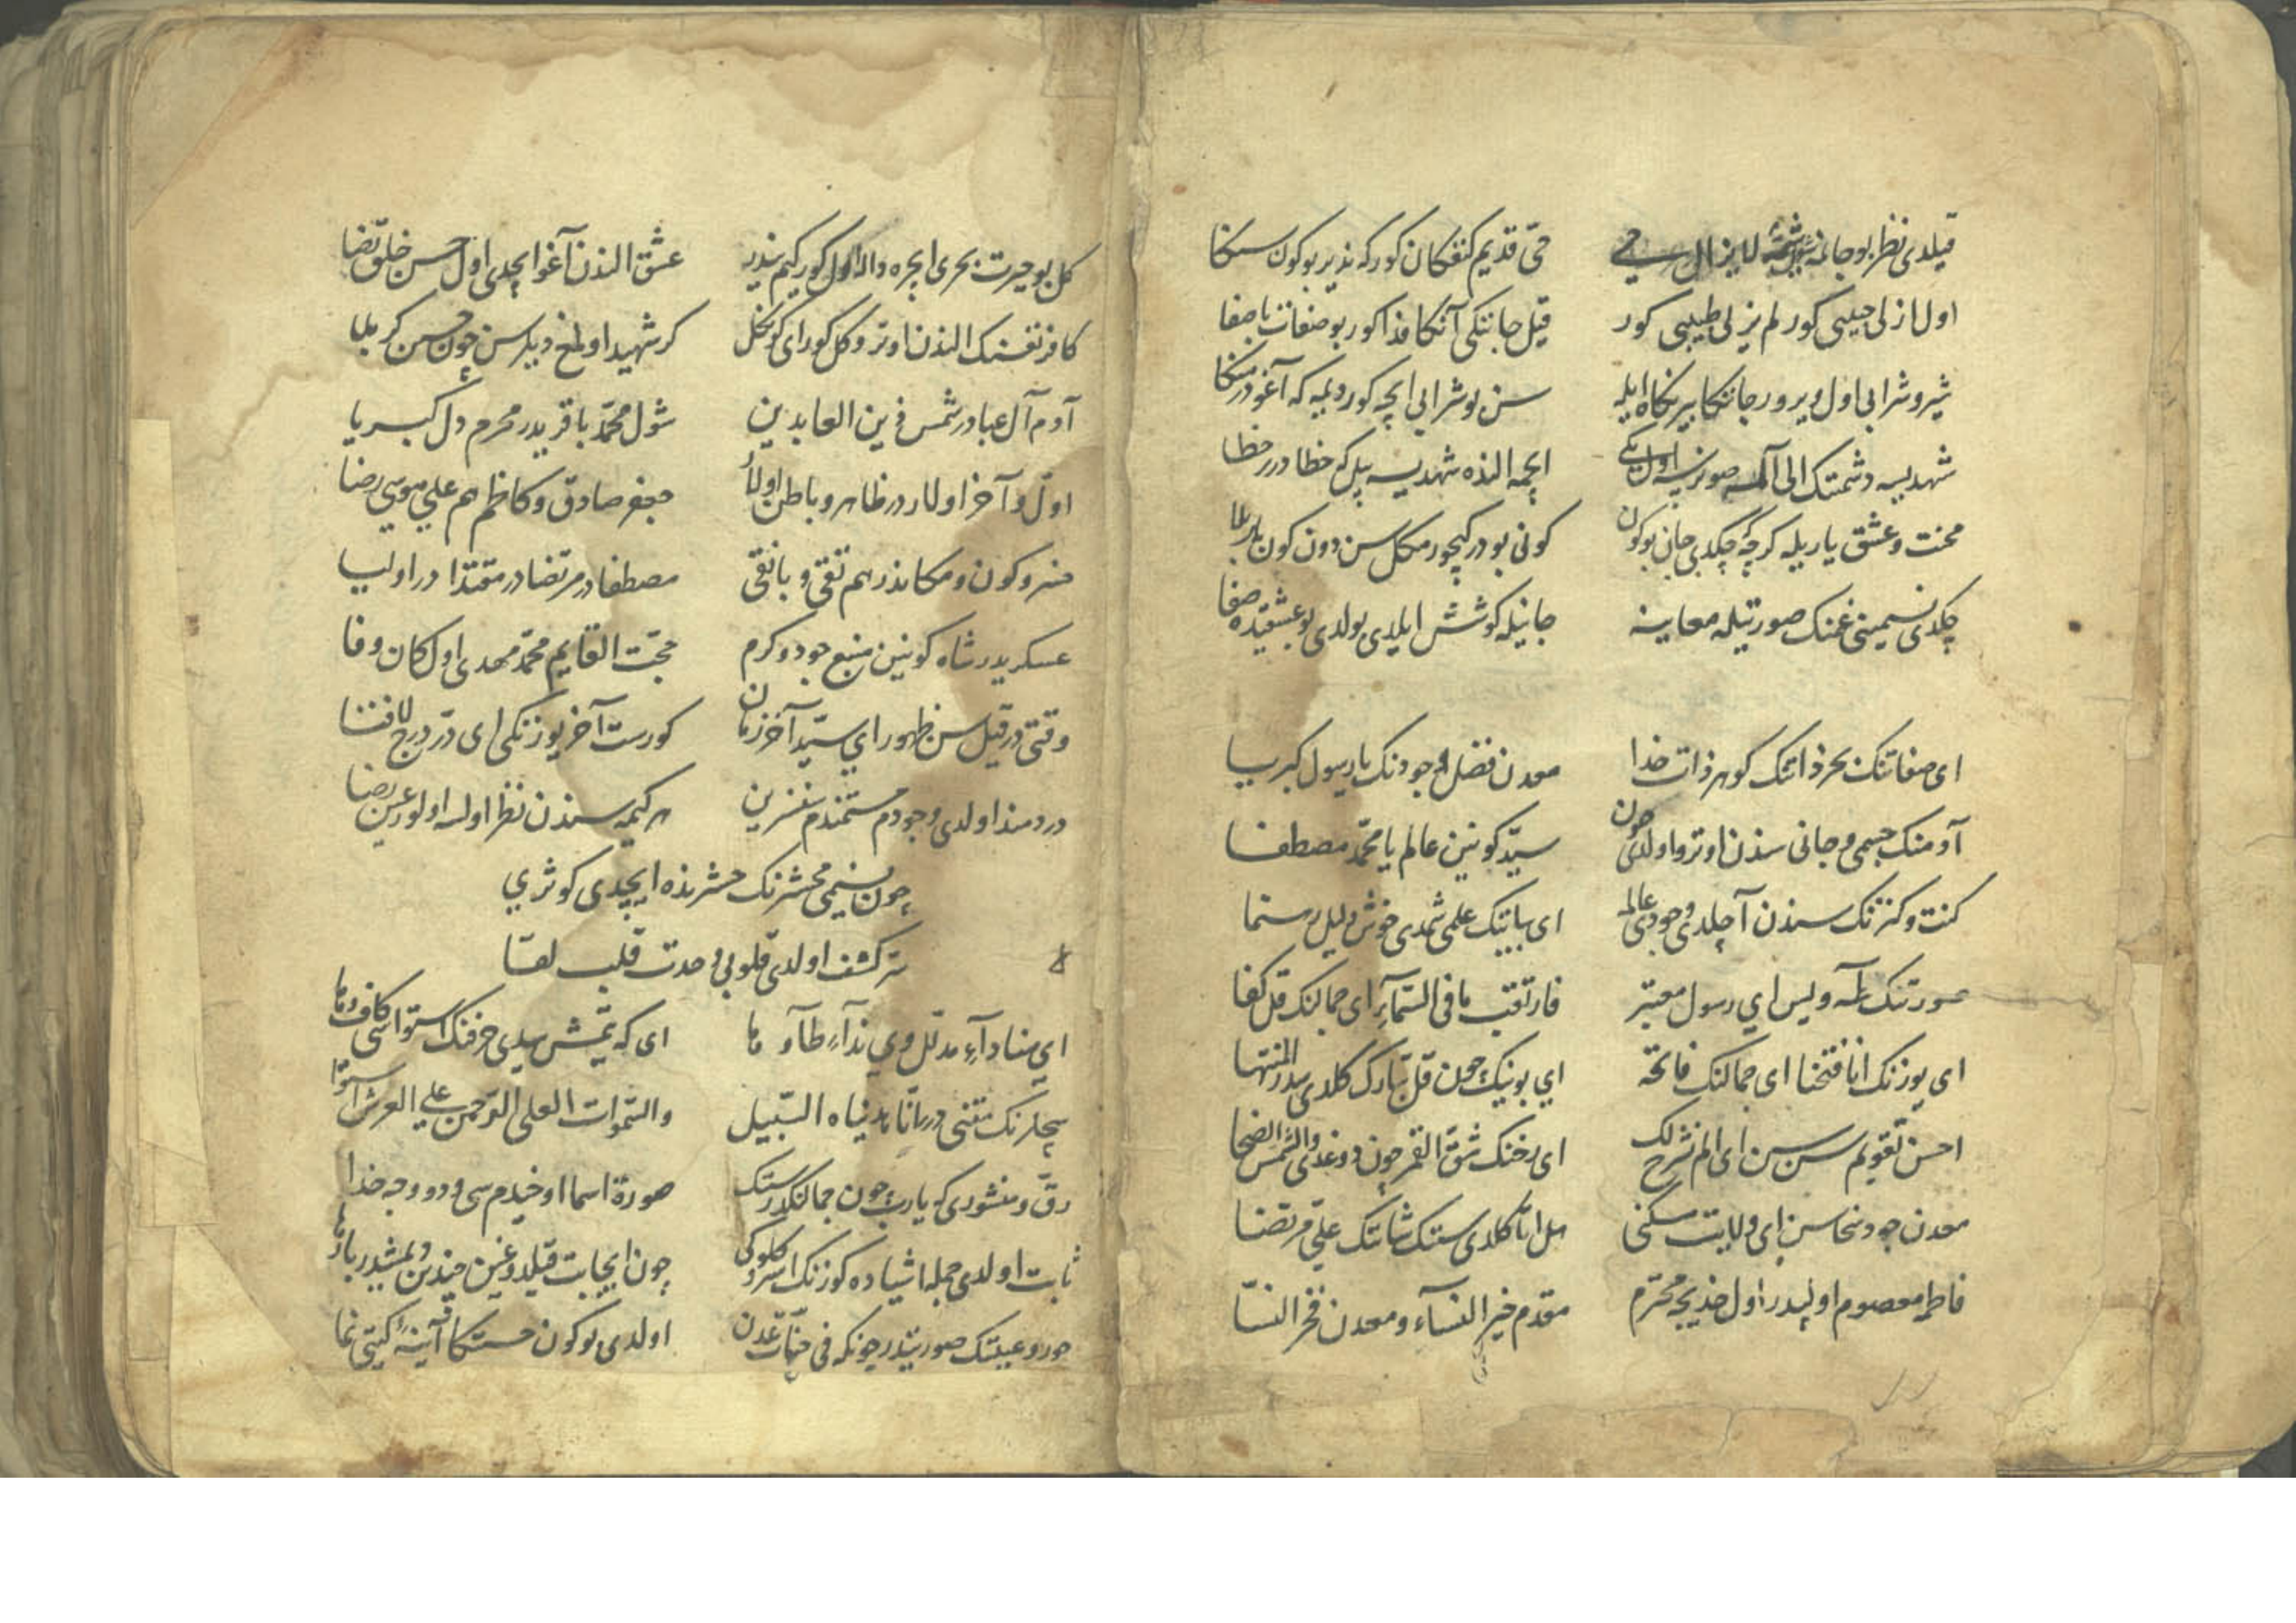 قیلدی نظر بو جانمه لایزال حی قدیم کنفکان کور که نذیر بو کون سکا
اول ازلی حبیبی کور لم یزلی طبیبی کور قیل جانکی آنکا فدا کور بو صفات باصفا
شیر و شرابی اول ویرور جانکا بیر نکاه ایله سن بو شرابی ایچه کور دیمه که آغودر منکا
شهدیسه دشمنک الی آلمه صونرسه اول سکا ایچمه الندە شهدیسه بیل که خطادرر خطا
محنت و عشق یاریله کرچه چکدی جان بو کون کونی بودر کچورمکل سن دون کون یاربلا
چکدی نسیمینی غمنک صورتیله معاینه جانیله کوشش ایلدی بولدی بو عشقده صفا
ای صفاتنک بحر ذاتنک کوهر ذات خدا معدن فضل وجودنک یا رسول کبریا
آدمنک جسمی و جانی سندن اوترو اولدی چون سید کونین عالم یا محمد مصطفا
کنت و کنزنک سندن آچلدی وجودی عالمه ای بابنک علمی شمدی خوش دلیل رهنما
صورتنک طه و یس ای رسول معتبر فارتقب ما فی السماء ای جمالنک قل کفا
ای یوزنک انا فتحنا ای جمالنک فاتحه ای بوینک چون قل تبارک کلدی سدر المنتها
احسن تقویم سن سن ای الم نشرح لک ای رخنک شق القمر چون دوغدی والشمس الضحا
معدن جود و سخاسن ای ولایت مسکنی هل اتا کلدی سنک شاننک علی مرتضا
فاطمه معصوم اولپدر اول خدیجه محترم مقدم خیر النساء و معدن فخر النسا
کل بو حیرت بحری ایچره واله اول کور کیم ندر عشق الندن آغو ایچدی اول حسن خلق رضا
کافر نفسنک الندن اوترو کل کور ای کوکل کر شهید اولمغ دیلرسن چون حسین کربلا
آدم آل عبادر شمس زین العابدین شول محمد باقریدر محرم دل کبریا
اول و آخر اولاردر ظاهر و باطن اولار جعفر صادق و کاظم هم علی موسی رضا
سرو کون و مکاندر هم تقی و با نقی مصطفادر مرتضادر مقتدادر اولیا
عسکریدر شاه کونین منبع جود و کرم حجت القایم محمد مهدی اول کان وفا
وقتی در قیل سن ظهور ای سید آخر زمان کورست آخر یوزنکی ای در درج لافتا
دردمند اولدی وجودم مستمندم سنزین هر کیمه سندن نظر اولسه اولور عین رضا
چون نسیمی محشرنک حشرنده ایچدی کوثری
سر کشف اولدی قلوبی وحدت قلب لقا
ای منادآء مدلل وی ندآء طآوها ای که یتمش یدی حرفنک استواسی کاف وها
سچلرنک متنی در انا هدیناه السبیل والسموات العلی الرحمن علی العرش استوا
رق و منشوری که یارب چون جمالنکدر سنک صورة اسما اوخیدم سی و دو وجه خدا
ثابت اولدی جمله اشیاده کوزنک چون ایجابت قیلدو
حور و عینک صورتیدر چونکه فی جنات عدن اولدی بو کون حسنکا آینهٔ کیتی نما